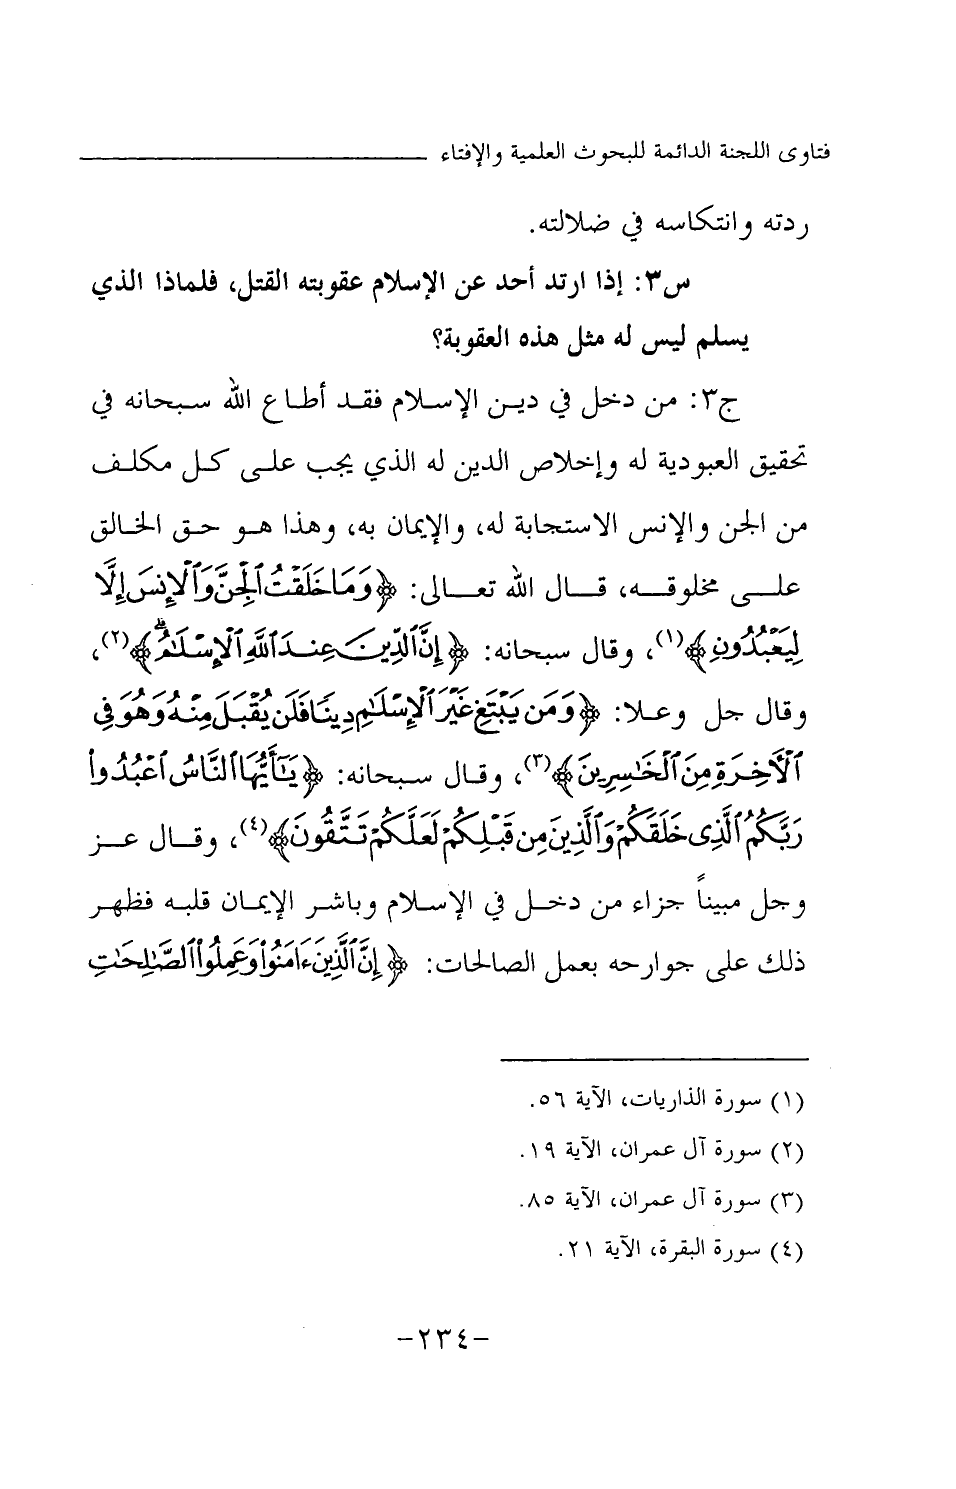 فتاوى اللجنة الدائمة للبحوث العلمية والإفتاء
ردته وانتكاسه في ضلالته.
س٣: إذا ارتد أحد عن الإسلام عقوبته القتل، فلماذا الذي
يسلم ليس له مثل هذه العقوبة؟
ج٣: من دخل في دين الإسلام فقد أطاع الله سبحانه في
تحقيق العبودية له وإخلاص الدين له الذي يجب على كل مكلف
من الجن والإنس الاستجابة له، والإيمان به، وهذا هو حق الخالق
على مخلوقه، قال الله تعالى: ﴿وَمَا خَلَقْتُ ٱلْجِنَّ وَٱلْإِنسَ إِلَّا
لِيَعْبُدُونِ﴾(١)، وقال سبحانه: ﴿إِنَّ ٱلدِّينَ عِندَ ٱللَّهِ ٱلْإِسْلَٰمُ ۗ﴾(٢)،
وقال جل وعلا: ﴿وَمَن يَبْتَغِ غَيْرَ ٱلْإِسْلَٰمِ دِينًا فَلَن يُقْبَلَ مِنْهُ وَهُوَ فِى
ٱلْءَاخِرَةِ مِنَ ٱلْخَٰسِرِينَ﴾(٣)، وقال سبحانه: ﴿يَٰٓأَيُّهَا ٱلنَّاسُ ٱعْبُدُوا۟
رَبَّكُمُ ٱلَّذِى خَلَقَكُمْ وَٱلَّذِينَ مِن قَبْلِكُمْ لَعَلَّكُمْ تَتَّقُونَ﴾(٤)، وقال عز
وجل مبيناً جزاء من دخل في الإسلام وباشر الإيمان قلبه فظهر
ذلك على جوارحه بعمل الصالحات: ﴿إِنَّ ٱلَّذِينَ ءَامَنُوا۟ وَعَمِلُوا۟ ٱلصَّٰلِحَٰتِ
(١) سورة الذاريات، الآية ٥٦.
(٢) سورة آل عمران، الآية ١٩.
(٣) سورة آل عمران، الآية ٨٥.
(٤) سورة البقرة، الآية ٢١.
-٢٣٤-